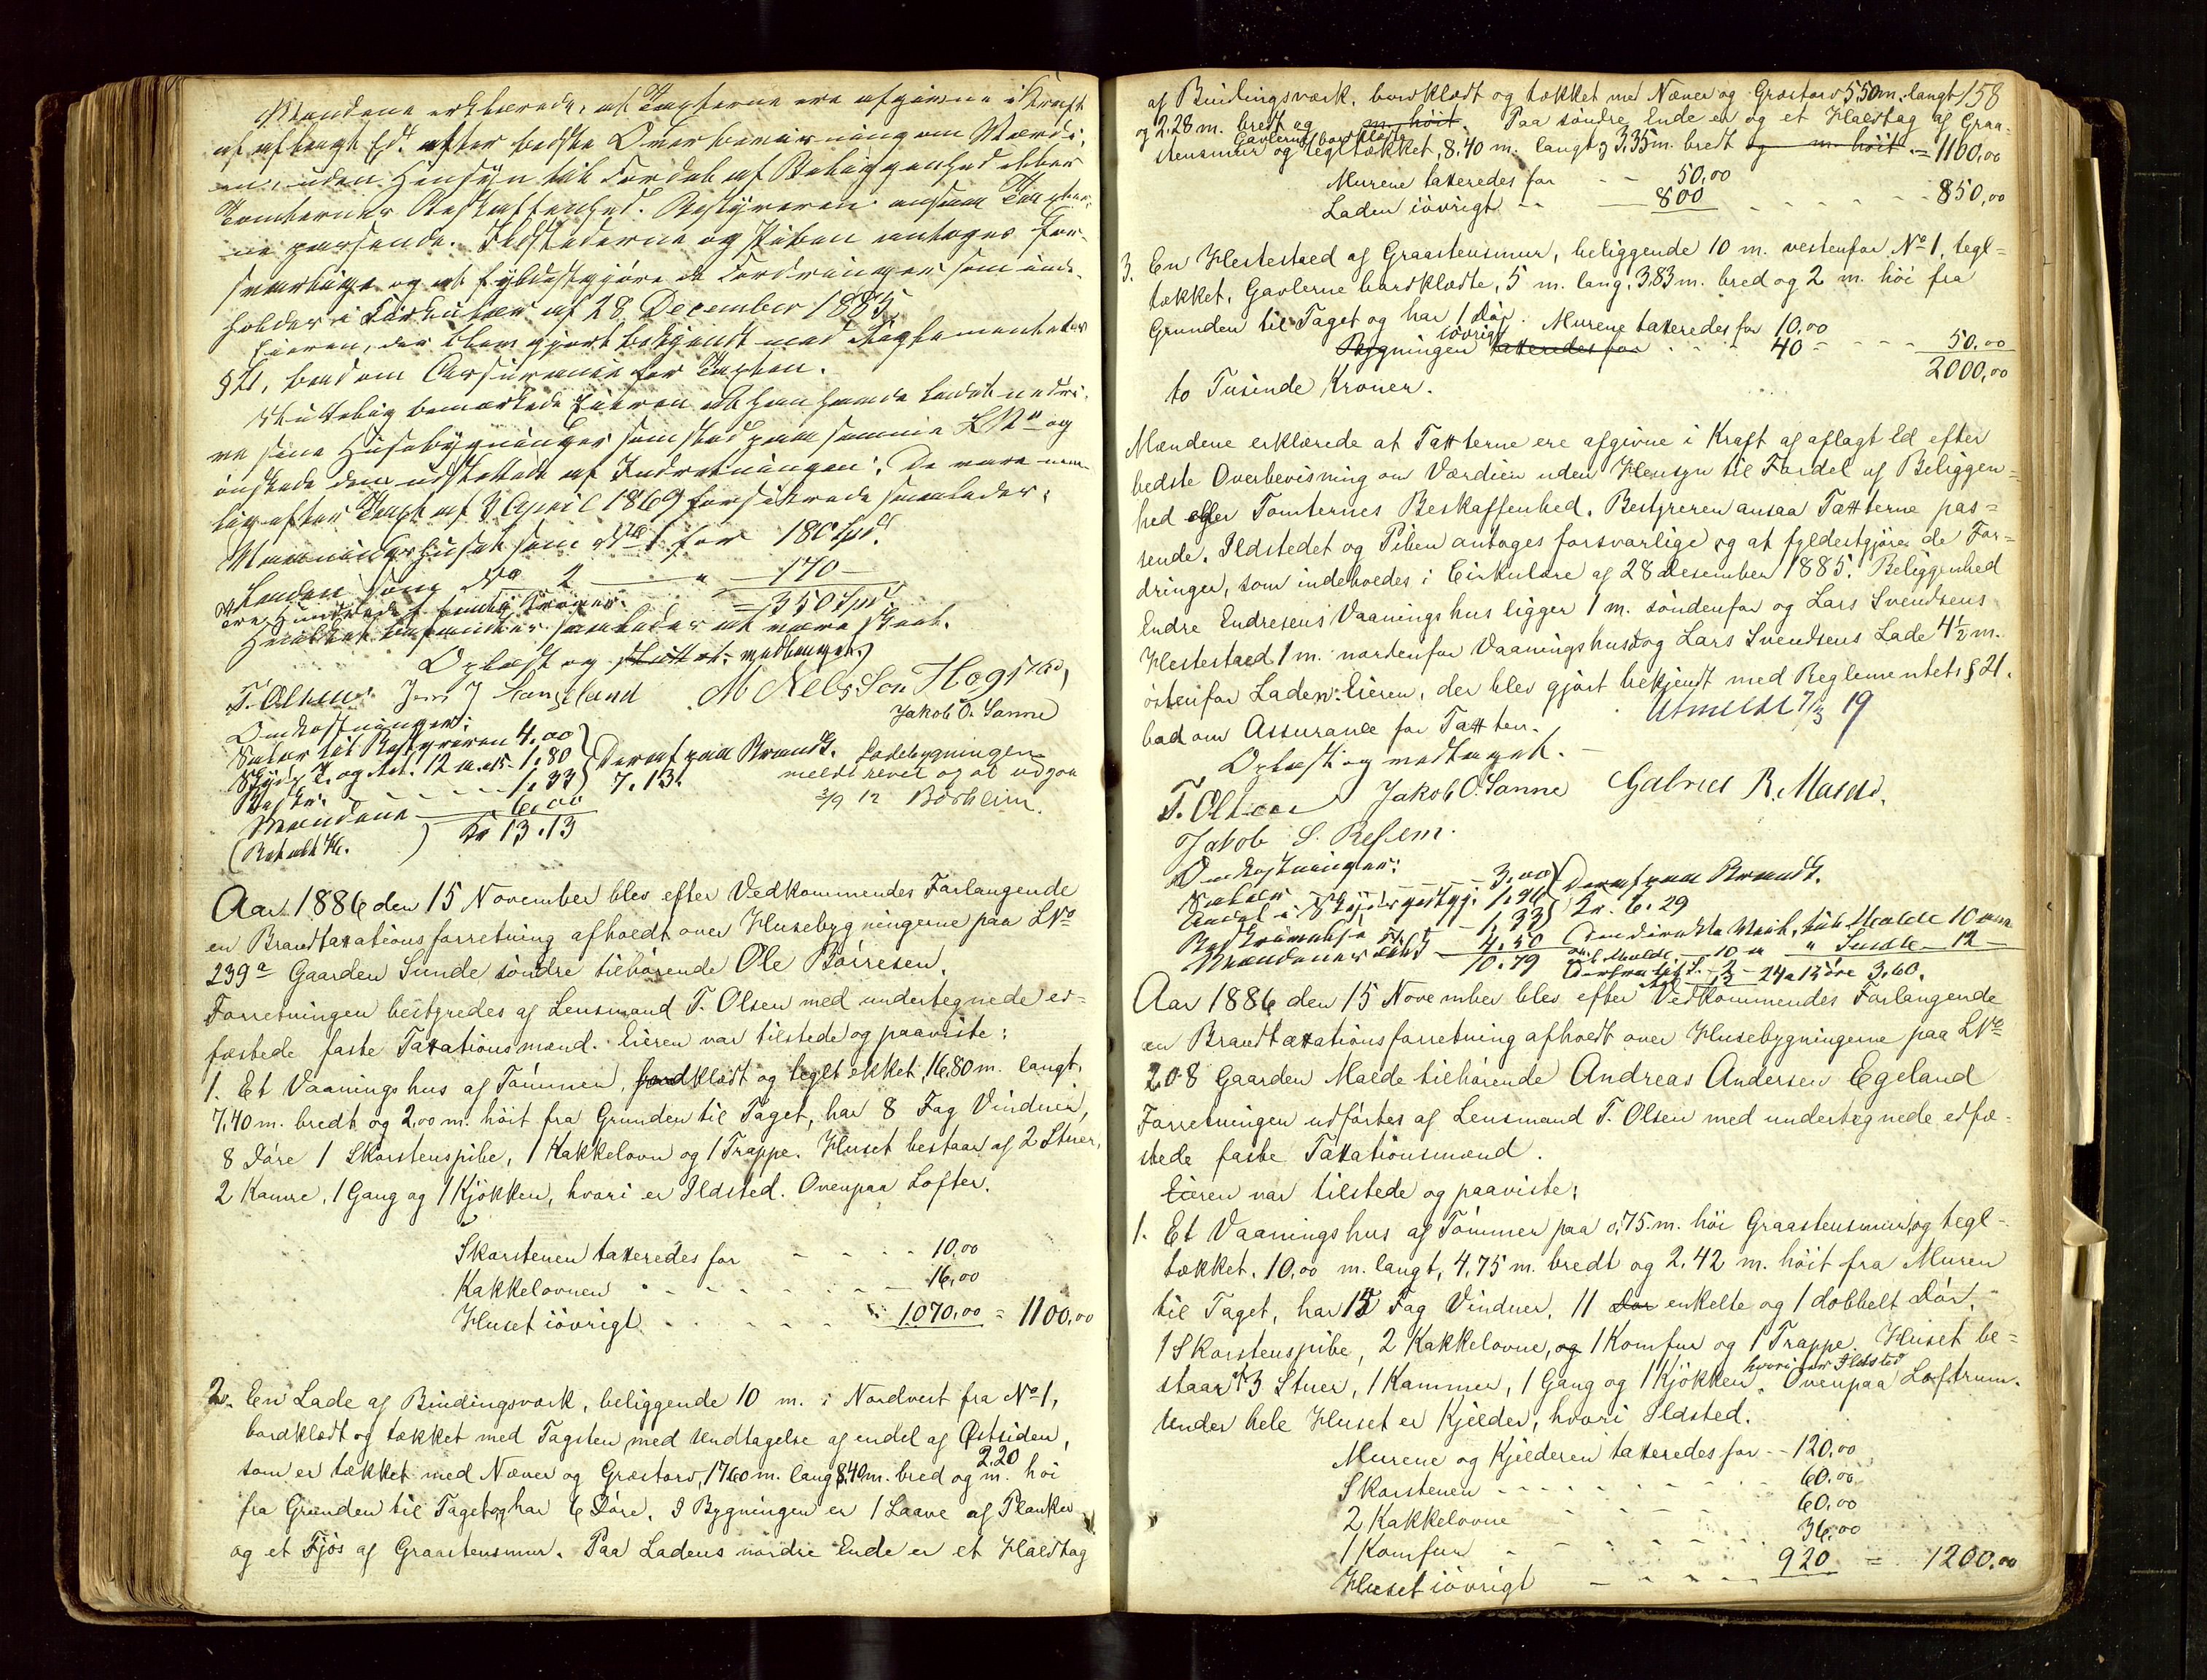 Mændene erklærede, at Taxterne ere afgivne i Kraft
af aflagt Ed efter bedste Overbevisning om Værdi-
en, uden Hensyn til Fordel af Beliggenhed eller
Tomternes Beskaffenhed. Bestyreren ansaa Taxter-
ne passende. Ildstederne og Piben antages for-
svarlige og at fyldestgjøre de Fordringer som inde-
holdes i Cirkulær af 28 December 1885
Eieren, der blev gjort bekjendt med Reglementets
§ 21, bad om Assurance for Taxten.
Sluttelig bemærkede Eieren at han havde ladet nedri-
ve sine Husebygninger som stod paa samme LNo og
ønskede dem udslettede af Indretningen. De vare nem-
lig efter Taxt af 3 April 1869 forsikrede saaledes:
Vaaningshuset som No 1 for 180 Spd.
Laden som No 2 — " — 170 —
= 350 Spd
Hvilket befandtes saaledes at være skeet.
Oplæst og vedtaget.
T. Olsen Jens J Hangeland M Nelsson Hogstad,
Jakob O. Sanne
Omkostninger:
Salær til Bestyreren 4.00
Skyds T. og Ret. 12 a 15 - 1.80 Deraf paa Brandk. Ladebygningen
1.33 7.13. meldt revet og at udgaa
Mændene 6.00 3/9 12 Borheim.
(Betalt ) Kr 13.13
Aar 1886 den 15 November blev efter Vedkommendes Forlangende
en Brandtaxationsforretning afholdt over Husebygningerne paa LNo
239a Gaarden Sunde søndre tilhørende Ole Børresen.
Forretningen bestyredes af Lensmand T. Olsen med undertegnede ed-
fæstede faste Taxationsmænd. Eieren var tilstede og paaviste:
1. Et Vaaningshus af Tømmer, bordklædt og tegltækket, 16,80 m. langt,
7,40 m. bredt og 2,00 m. høit fra Grunden til Taget, har 8 Fag Vinduer,
8 Døre 1 Skorstenspibe, 1 Kakkelovn og 1 Trappe. Huset bestaar af 2 Stuer,
2 Kamre, 1 Gang og 1 Kjøkken, hvori er Ildsted. Ovenpaa Lofter.
Skorstenen taxeredes for - - - - 10,00
Kakkelovnen - - - - - 16,00
Huset iøvrigt - - - - 1070,00 = 1100,00
2. En Lade af Bindingsværk, beliggende 10 m. i Nordvest fra No 1,
bordklædt og tækket med Tagsten med Undtagelse af endel af Østsiden,
som er tækket med Næver og Græstorv, 17,60 m. lang 8,40 m. bred og 2.20 m. høi
fra Grunden til Taget og har 6 Døre. I Bygningen er 1 Laave af Planker
og et Fjøs af Graastensmur. Paa Ladens nordre Ende er et Halvtag
af Bindingsværk, bordklædt og tækket med Næver og Græstorv 5.50 m. langt 158
og 2.28 m. bredt og m. høit. Paa søndre Ende er og et Halvtag af Graa-
stensmur Gavlerne bordklædte og tegltækket, 8,40 m. langt og 3,35 m. bredt og m. høit. = 1100,00
Murene taxeredes for - - 50,00
Laden iøvrigt - - 800 - - - - - 850,00
3. En Hestestald af Graastensmur, beliggende 10 m. vestenfor No 1, tegl-
tækket, Gavlerne bordklædte, 5 m. lang, 3,83 m. bred og 2 m. høi fra
Grunden til Taget og har 1 Dør. Murene taxeredes for 10,00
Bygningen iøvrigt taxeredes for - - - 40 - - - - 50,00
2000,00
to Tusinde Kroner.
Mændene erklærede at Taxterne ere afgivne i Kraft af aflagt Ed efter
bedste Overbevisning om Værdien uden Hensyn til Fordel af Beliggen-
hed eller Tomternes Beskaffenhed. Bestyreren ansaa Taxterne pas-
sende. Ildstedet og Piben antages forsvarlige og at fyldestgjøre de For-
dringer, som indeholdes i Cirkulære af 28 Desember 1885. Beliggenhed
Endre Endresens Vaaningshus ligger 1 m. søndenfor og Lars Svendsens
Hestestald 1 m. nordenfor Vaaningshuset og Lars Svendsens Lade 4½ m.
østenfor Laden. Eieren, der blev gjort bekjendt med Reglementets § 21.
bad om Assurance for Taxten. Utmeldt 7/3 19
Oplæst og vedtaget.
T. Olsen Jakob O. Sanne Gabriel R. Malde.
Jakob S. Refsem.
Omkostninger:
Salær - - - - - 3.00 Deraf paa Brandk.
Andel i Skydsgodtgj: 1.96 Kr. 6.29
1.33 Den direkte Vei til Malde 10 km
Mændenes 4.50 - 10 - " Sunde 12 -
10.79 24 a 15 øre 3.60.
Aar 1886 den 15 November blev efter Vedkommendes Forlangende
en Brandtaxationsforretning afholdt over Husebygningerne paa LNo
208 Gaarden Malde tilhørende Andreas Andersen Egeland
Forretningen udførtes af Lensmand T. Olsen med undertegnede edfæ-
stede faste Taxationsmænd.
Eieren var tilstede og paaviste:
1. Et Vaaningshus af Tømmer paa 0,75 m. høi Graastensmur, og tegl-
tækket. 10,00 m. langt, 4,75 m. bredt og 2,42 m. høit fra Muren
til Taget, har 15 Fag Vinduer, 11 Dør enkelte og 1 dobbelt Dør,
1 Skorstenspibe, 2 Kakkelovne, og 1 Komfur og 1 Trappe. Huset be-
staar af 3 Stuer, 1 Kammer, 1 Gang og 1 Kjøkken hvori er Ildsted. Ovenpaa Loftrum.
Under hele Huset er Kjelder, hvori Ildsted.
Murene og Kjelderen taxeredes for - - 120,00
Skorstenen - - - - - 60,00
2 Kakkelovne - - - - 60,00
1 Komfur - - - - - 36,00
Huset iøvrigt - - - - - 920 = 1200,00